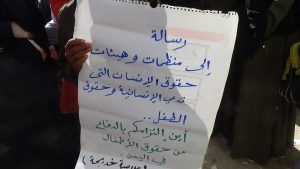 رسالة
إلى منظمات وهيئات
حقوق الإنسان التي
تدعي الإنسانية وحقوق
الطفل ..
أين التزامكم بالدفاع
عن حقوق الأطفال
في اليمن
مدرسة خديجة )